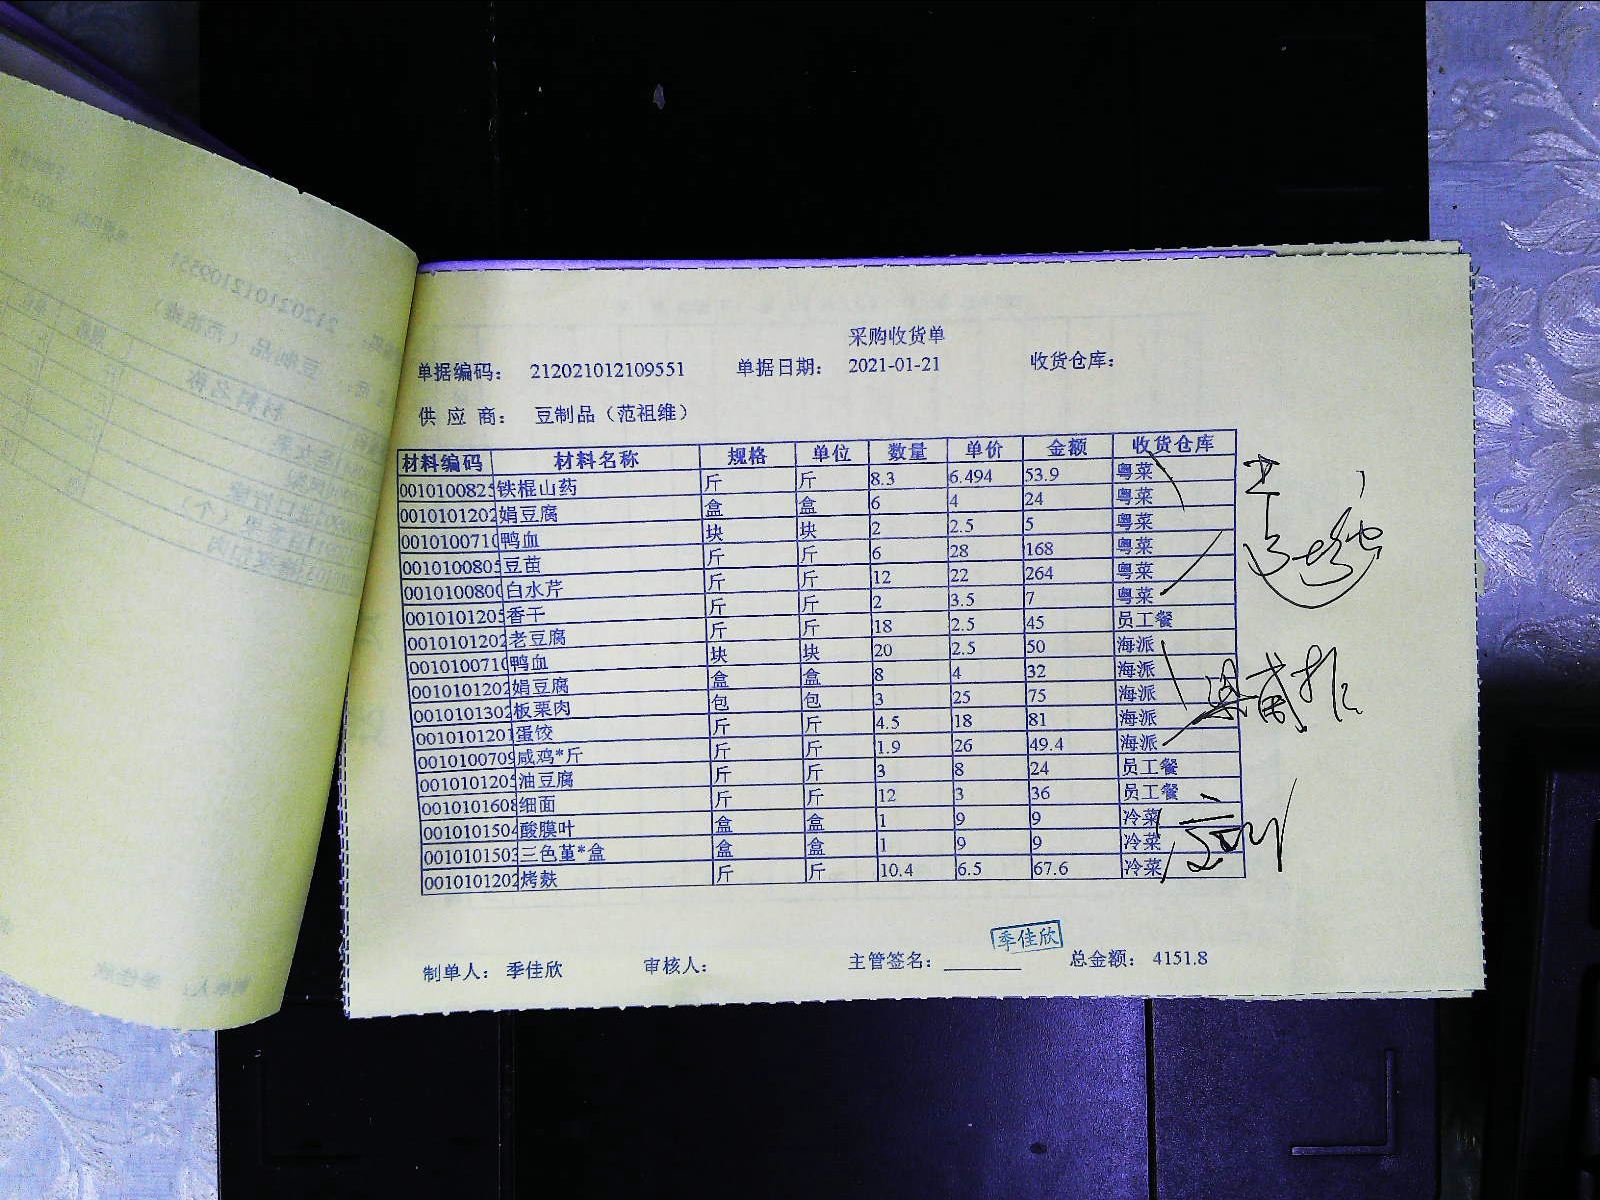 采购收货单
单据编码： 212021012109551 单据日期： 2021-01-21 收货仓库：
供 应 商： 豆制品（范祖维）
材料编码 材料名称 规格 单位 数量 单价 金额 收货仓库
0010100825 铁棍山药 斤 斤 8.3 6.494 53.9 粤菜
0010101202 娟豆腐 盒 盒 6 4 24 粤菜
001010071 鸭血 块 块 2 2.5 5 粤菜
0010100805 豆苗 斤 斤 6 28 168 粤菜
001010080 白水芹 斤 斤 12 22 264 粤菜
0010101205 香干 斤 斤 2 3.5 7 粤菜
0010101202 老豆腐 斤 斤 18 2.5 45 员工餐
001010071 鸭血 块 块 20 2.5 50 海派
0010101202 娟豆腐 盒 盒 8 4 32 海派
0010101302 板栗肉 包 包 3 25 75 海派
001010120 蛋饺 斤 斤 4.5 18 81 海派
0010100709 咸鸡*斤 斤 斤 1.9 26 49.4 海派
0010101205 油豆腐 斤 斤 3 8 24 员工餐
0010101608 细面 斤 斤 12 3 36 员工餐
0010101504 酸膜叶 盒 盒 1 9 9 冷菜
0010101503 三色堇*盒 盒 盒 1 9 9 冷菜
0010101202 烤麸 斤 斤 10.4 6.5 67.6 冷菜
季佳欣
制单人： 季佳欣 审核人： 主管签名： 总金额： 4151.8